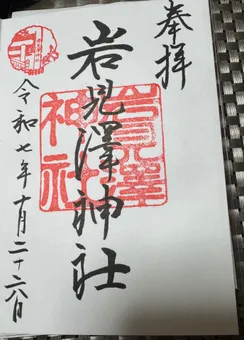 奉拝
岩見澤神社
岩見澤神社
令和七年十月二十六日